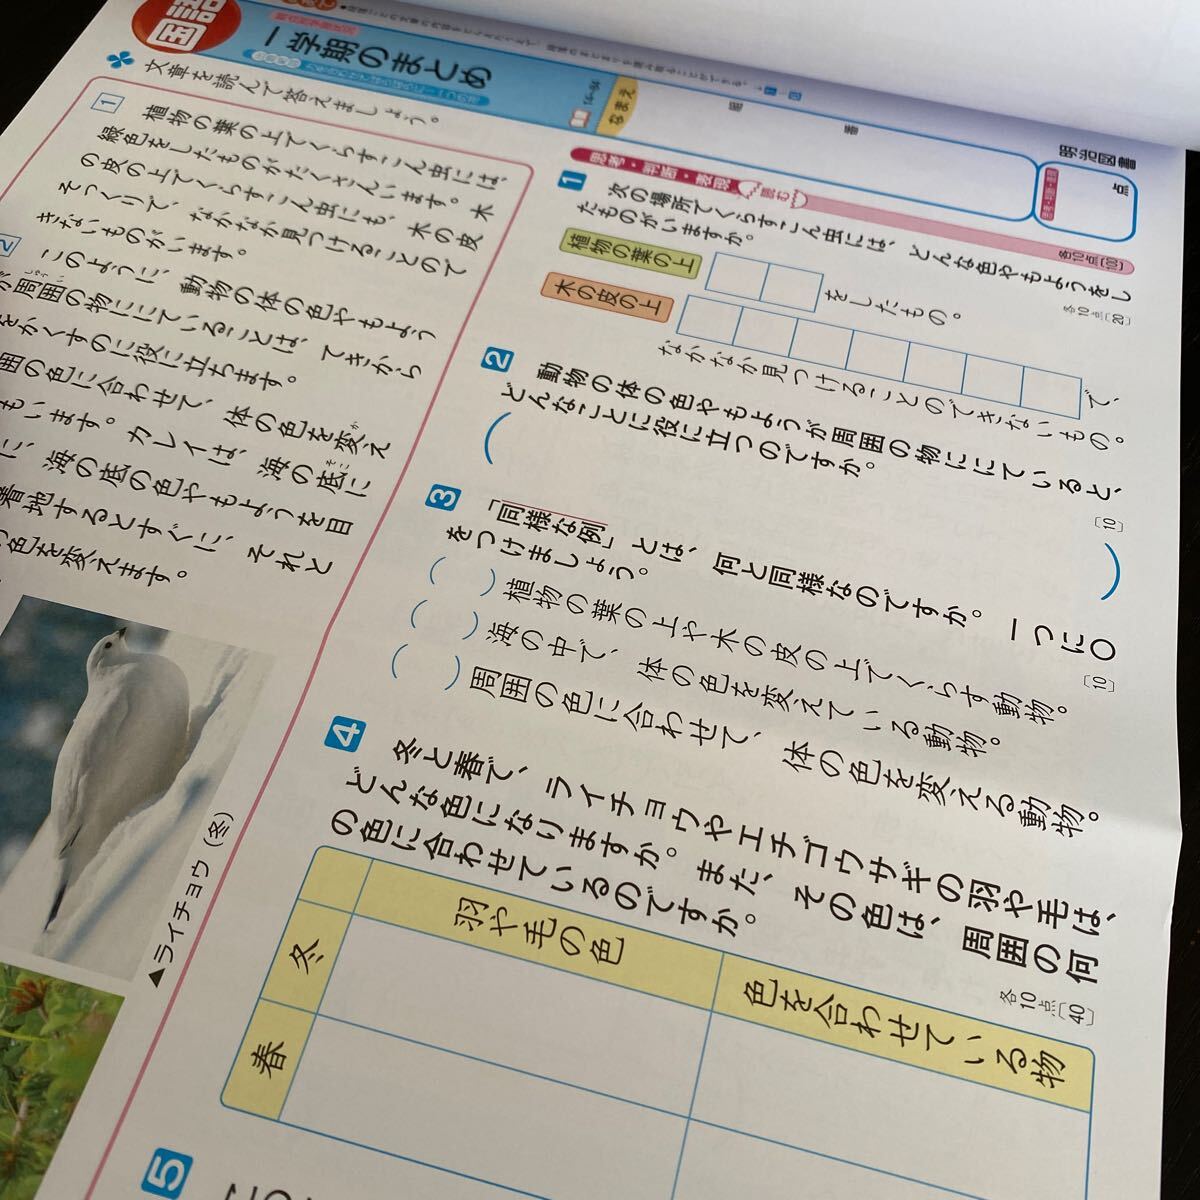 国語
一学期のまとめ
14〜64
なまえ
組
番
明治図書
点
文章を読んで答えましょう。
1
植物の葉の上でくらすこん虫には、
緑色をしたものがたくさんいます。木
の皮の上でくらすこん虫にも、木の皮
そっくりで、なかなか見つけることので
きないものがいます。
2
このように、動物の体の色やもよう
周囲の物ににていることは、てきから
をかくすのに役に立ちます。
囲の色に合わせて、体の色を変え
もいます。カレイは、海の底に
に、海の底の色やもようを目
着地するとすぐに、それと
色を変えます。
▲ライチョウ(冬)
思考・判断・表現
読む
各10点〔100〕
1
次の場所でくらすこん虫には、どんな色やもようをし
たものがいますか。
各10点〔20〕
植物の葉の上
をしたもの。
木の皮の上
で、
なかなか見つけることのできないもの。
2
動物の体の色やもようが周囲の物ににていると、
どんなことに役に立つのですか。
〔10〕
3
「同様な例」とは、何と同様なのですか。一つに○
をつけましょう。
〔10〕
植物の葉の上や木の皮の上でくらす動物。
海の中で、体の色を変えている動物。
周囲の色に合わせて、体の色を変える動物。
4
冬と春で、ライチョウやエチゴウサギの羽や毛は、
どんな色になりますか。また、その色は、周囲の何
の色に合わせているのですか。
各10点〔40〕
羽や毛の色
色を合わせている物
冬
春
5